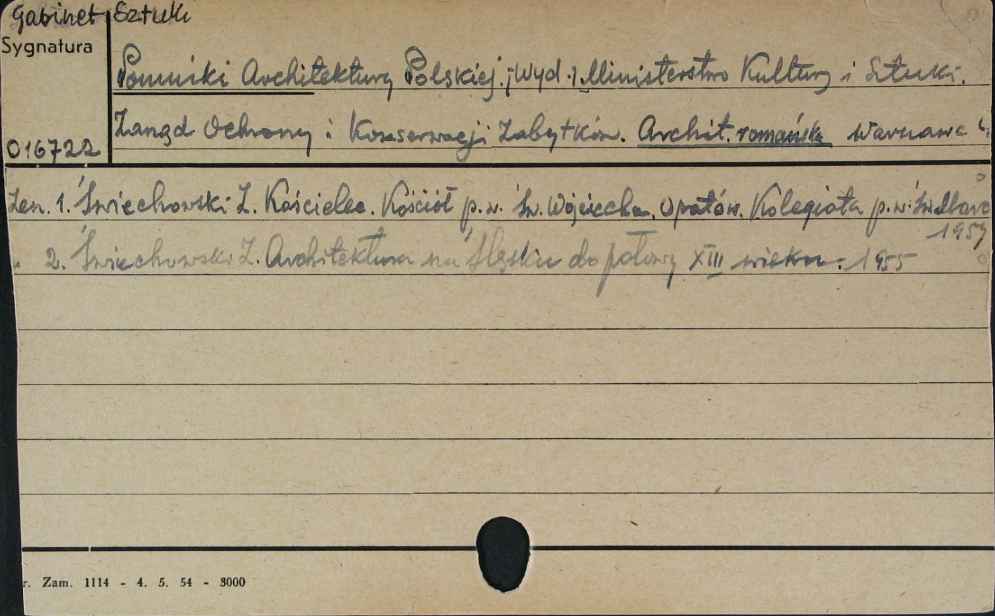 Gabinet Sztuki
Sygnatura
Pomniki Architektury Polskiej. (Wyd.) Ministerstwo Kultury i Sztuki.
Zarząd Ochrony i Konserwacji Zabytków. Archit. romańska Warszawa
016722
Zesz. 1. Świechowski Z. Kościelec. Kościół p.w. Św. Wojciecha, Opatów. Kolegiata p.w. Św.
1954
„ 2. Świechowski Z. Architektura na Śląsku do połowy XIII wieku. 1955
r. Zam. 1114 - 4. 5. 54 - 3000